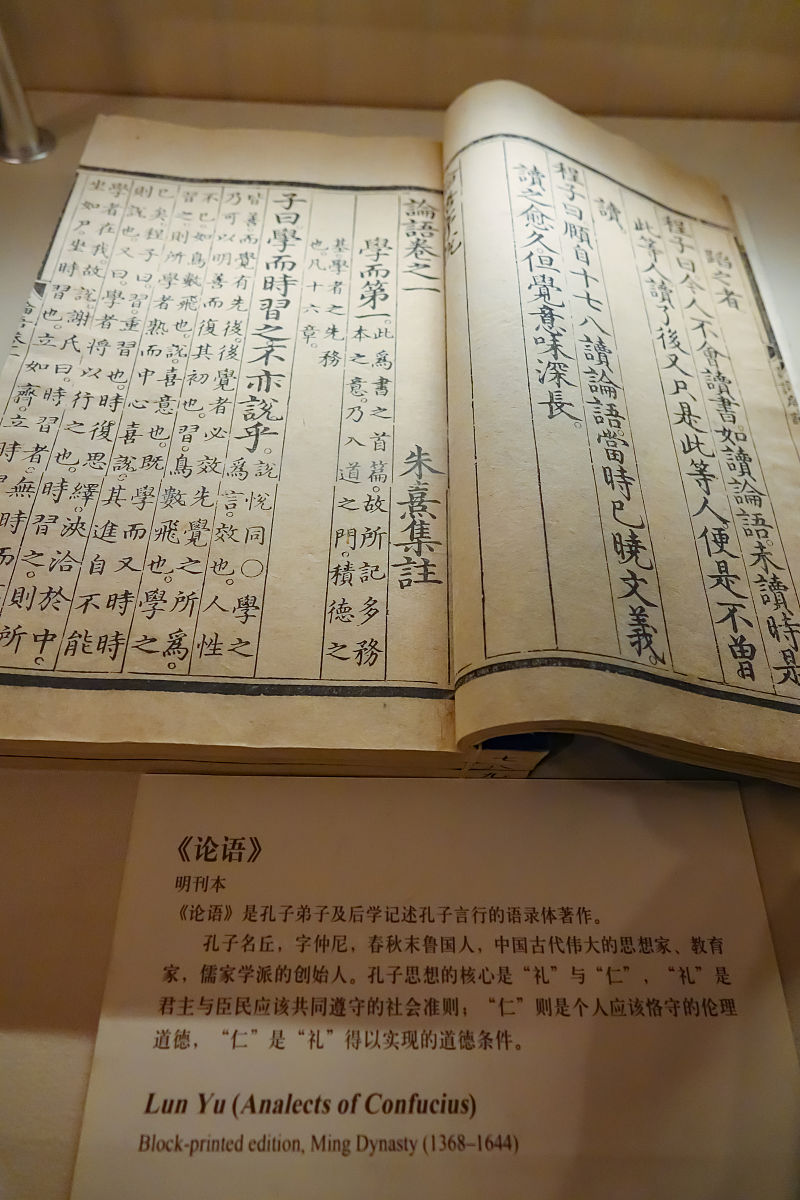 蹈之者
程子曰今人不會讀書。如讀論語。未讀時是
此等人。讀了後又只是此等人。便是不曾
讀。
程子曰頤自十七八讀論語。當時已曉文義。
讀之愈久但覺意味深長。
論語卷之一 朱熹集註
學而第一 此爲書之首篇。故所記多務
本之意。乃入道之門。積德之
基。學者之先務
也。凡十六章。
子曰學而時習之不亦說乎。說悅同〇學之
爲言。效也。人性
皆善而覺有先後。後覺者必效先覺之所爲。
乃可以明善而復其初也。習。鳥數飛也。學之
不已。如鳥數飛也。說。喜意也。既學而又時時
習之。則所學者熟而中心喜說。其進自不能
已矣。程子曰。習。重習也。時復思繹。浹洽於中。
則說也。又曰。學者將以行之也。時習之。則所
學者在我。故說。謝氏曰。時習者。無時而
坐如尸。坐時習也。立如齊。立時
《论语》
明刊本
《论语》是孔子弟子及后学记述孔子言行的语录体著作。
孔子名丘，字仲尼，春秋末鲁国人，中国古代伟大的思想家、教育
家，儒家学派的创始人。孔子思想的核心是“礼”与“仁”，“礼”是
君主与臣民应该共同遵守的社会准则；“仁”则是个人应该恪守的伦理
道德，“仁”是“礼”得以实现的道德条件。
Lun Yu (Analects of Confucius)
Block-printed edition, Ming Dynasty (1368–1644)